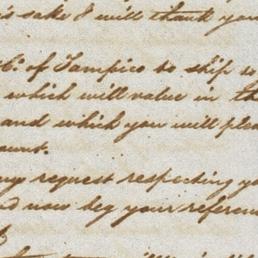 sake I will thank you
of Tampico to ship
which will value in th
and which you will plea
request respecting yo
now beg your referen